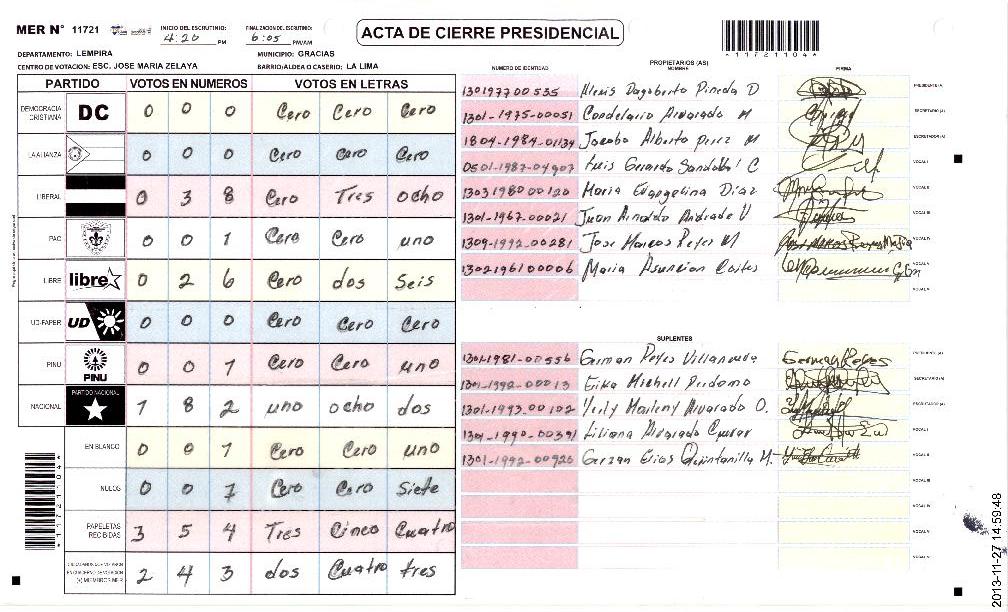 MER N° 11721
INICIO DEL ESCRUTINIO:
4:20 PM
FINALIZACION DEL ESCRUTINIO:
6:05 PM/AM
ACTA DE CIERRE PRESIDENCIAL
*11721104*
DEPARTAMENTO: LEMPIRA
MUNICIPIO: GRACIAS
CENTRO DE VOTACION: ESC. JOSE MARIA ZELAYA
BARRIO/ALDEA O CASERIO: LA LIMA
PARTIDO VOTOS EN NUMEROS VOTOS EN LETRAS
DEMOCRACIA CRISTIANA DC 0 0 0 Cero Cero Cero
LA ALIANZA 0 0 0 Cero Cero Cero
LIBERAL 0 3 8 Cero Tres ocho
PAC 0 0 1 Cero Cero uno
LIBRE libre 0 2 6 Cero dos Seis
UD-FAPER UD 0 0 0 Cero Cero Cero
PINU PINU 0 0 1 Cero Cero uno
NACIONAL PARTIDO NACIONAL 1 8 2 uno ocho dos
EN BLANCO 0 0 1 Cero Cero uno
NULOS 0 0 7 Cero Cero Siete
PAPELETAS RECIBIDAS 3 5 4 Tres Cinco Cuatro
(+) MIEMBROS MER 2 4 3 dos Cuatro tres
*11721104*
PROPIETARIOS (AS)
NUMERO DE IDENTIDAD NOMBRE FIRMA
130197700535 Alexis Dagoberto Pineda D PRESIDENTE (A)
1301-1975-00051 Candelario Alvarado M SECRETARIO (A)
1804-1984-01134 Jacobo Alberto perez M ESCRUTADOR (A)
0501-1987-04907 Luis Gerardo Sandobal C VOCAL I
1303198000120 Maria Evangelina Diaz VOCAL II
1301-1967-00021 Juan Arnaldo Andrade V VOCAL III
1309-1992-00281 Jose Marcos Reyes M VOCAL IV
1302196100006 Maria Asuncion Cortes VOCAL V
VOCAL VI
SUPLENTES
1301-1981-00556 German Reyes Villanueva PRESIDENTE (A)
1301-1992-00013 Erika Michell Perdomo SECRETARIO (A)
1301-1993-00102 Yesly Marleny Alvarado O. ESCRUTADOR (A)
1301-1990-00391 Liliana Alvarado VOCAL I
1301-1992-00920 Gerzan Elias Quintanilla M. VOCAL II
VOCAL III
VOCAL IV
VOCAL V
VOCAL VI
2013-11-27 14:59:48